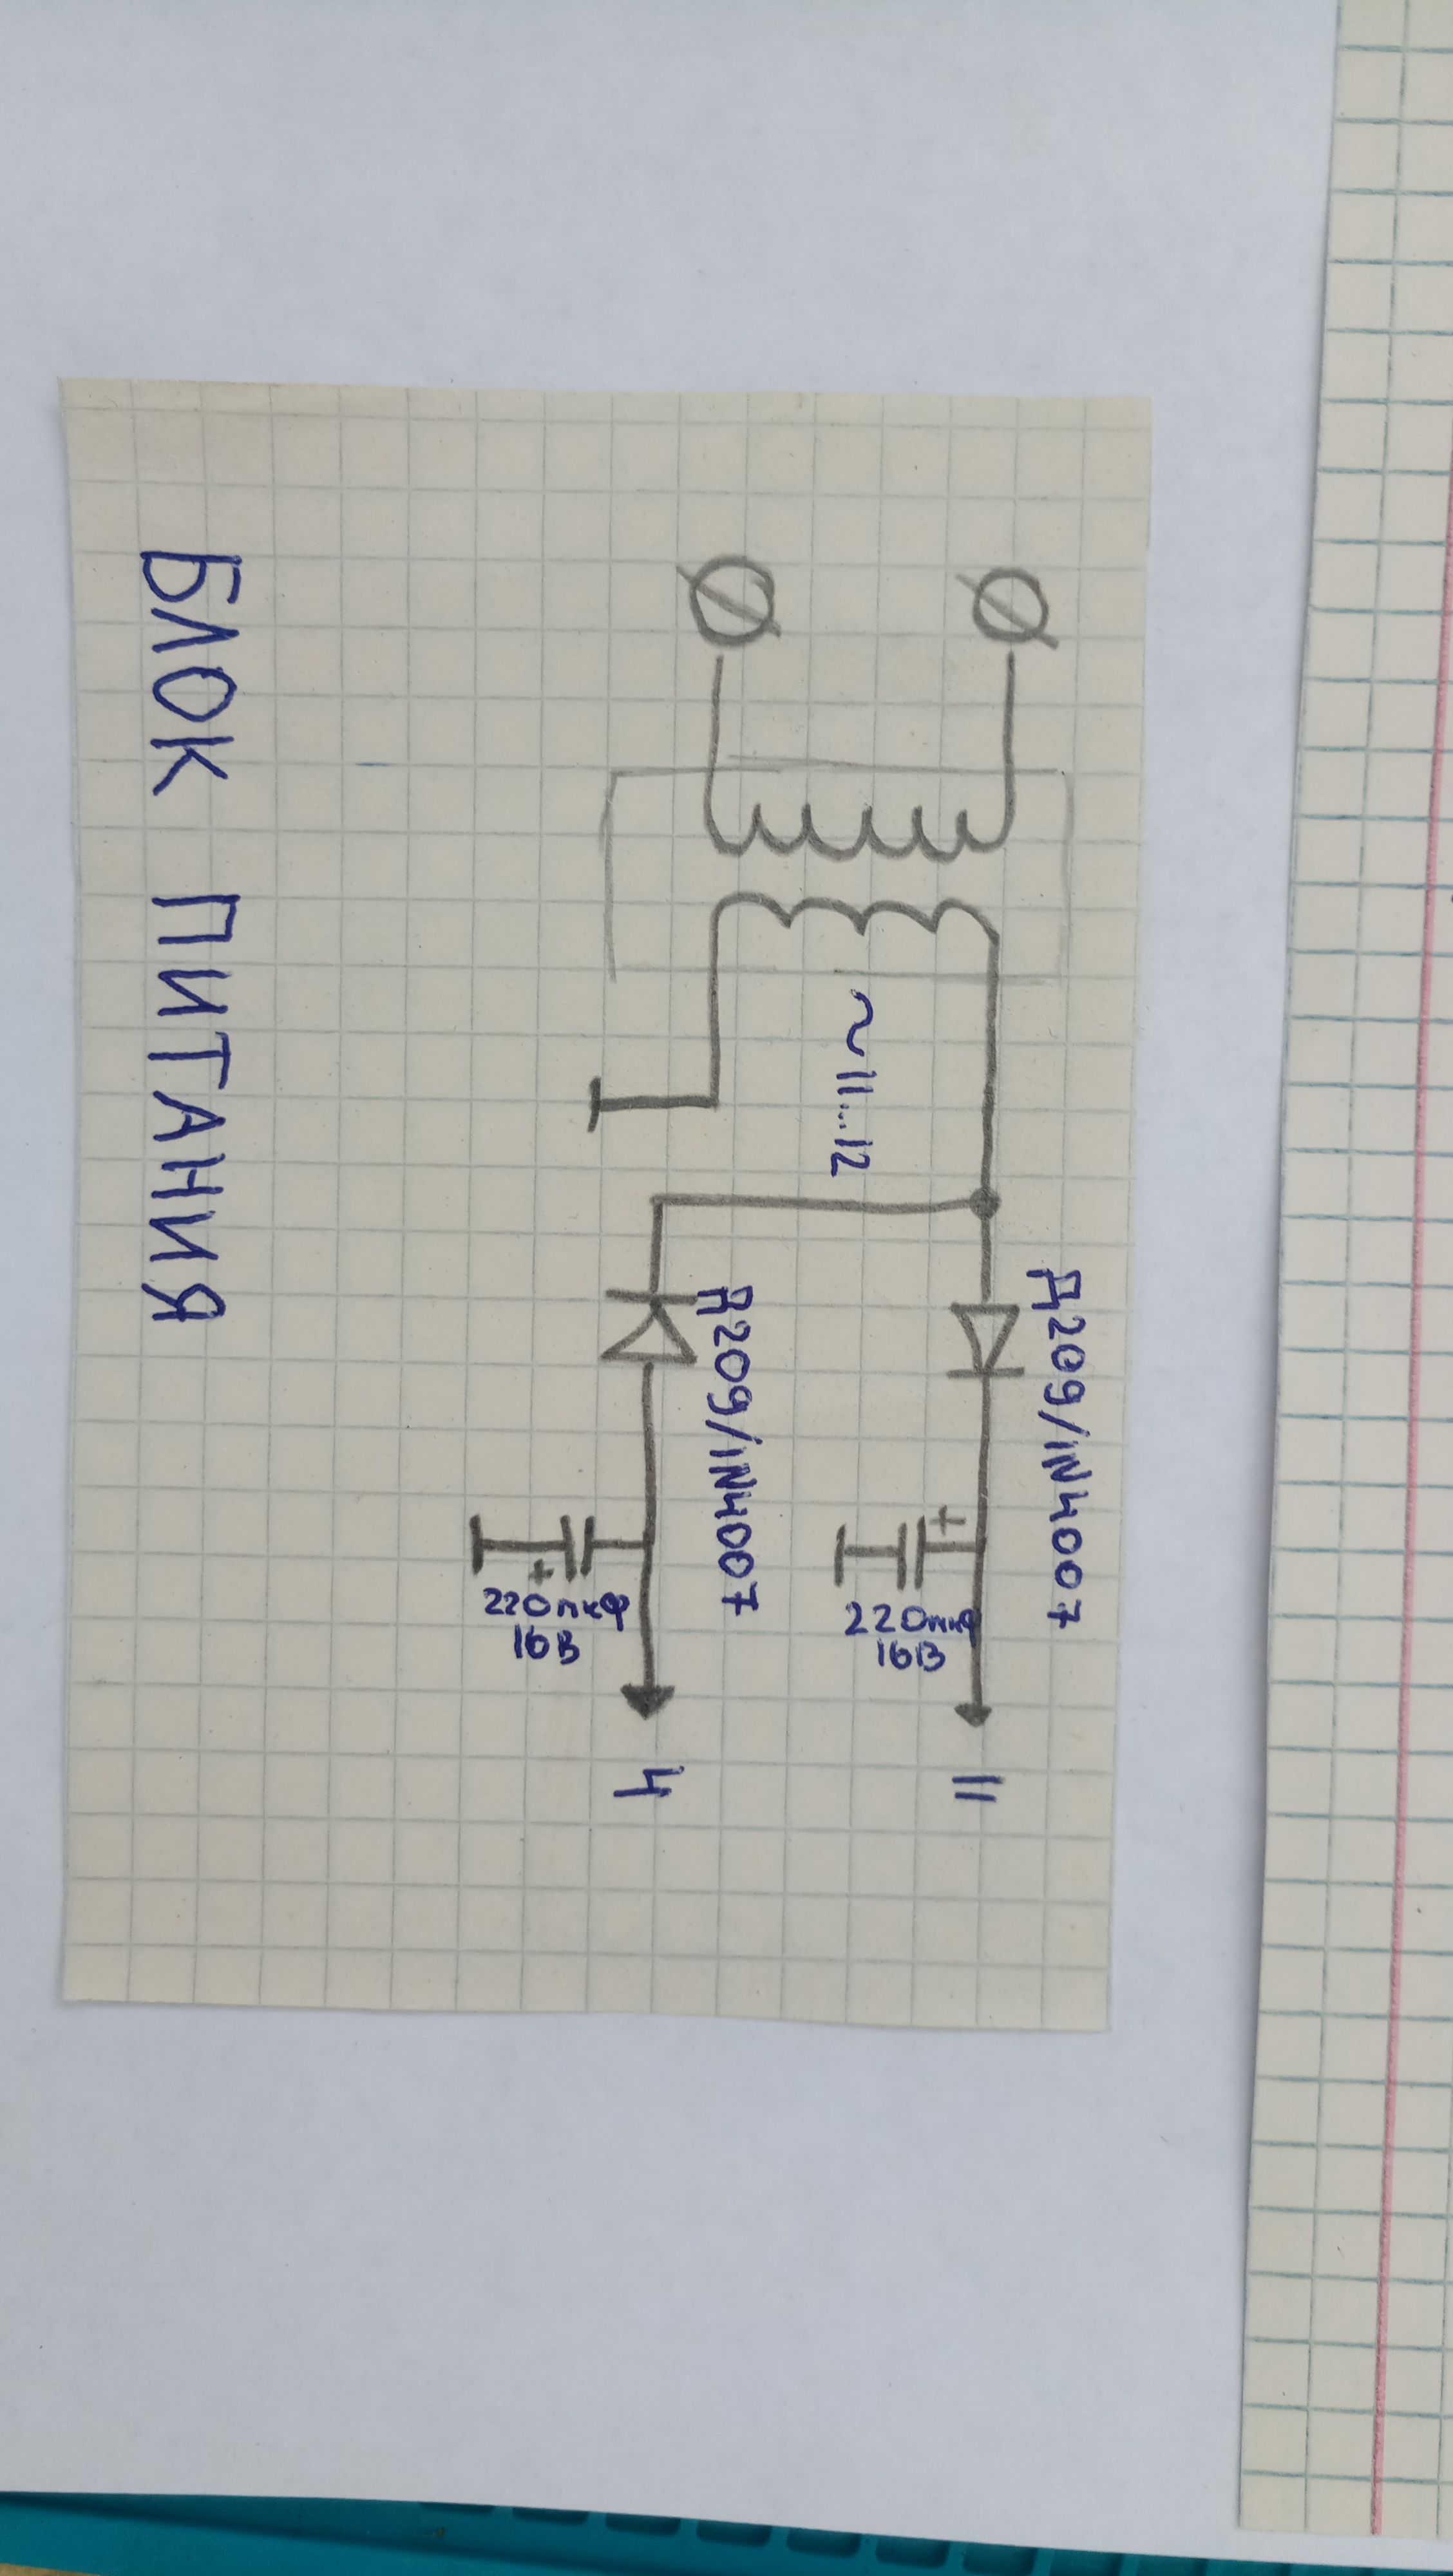 Д209/1N4007
~11...12
220мкф
16В
11
Д209/1N4007
220мкф
16В
4
БЛОК ПИТАНИЯ